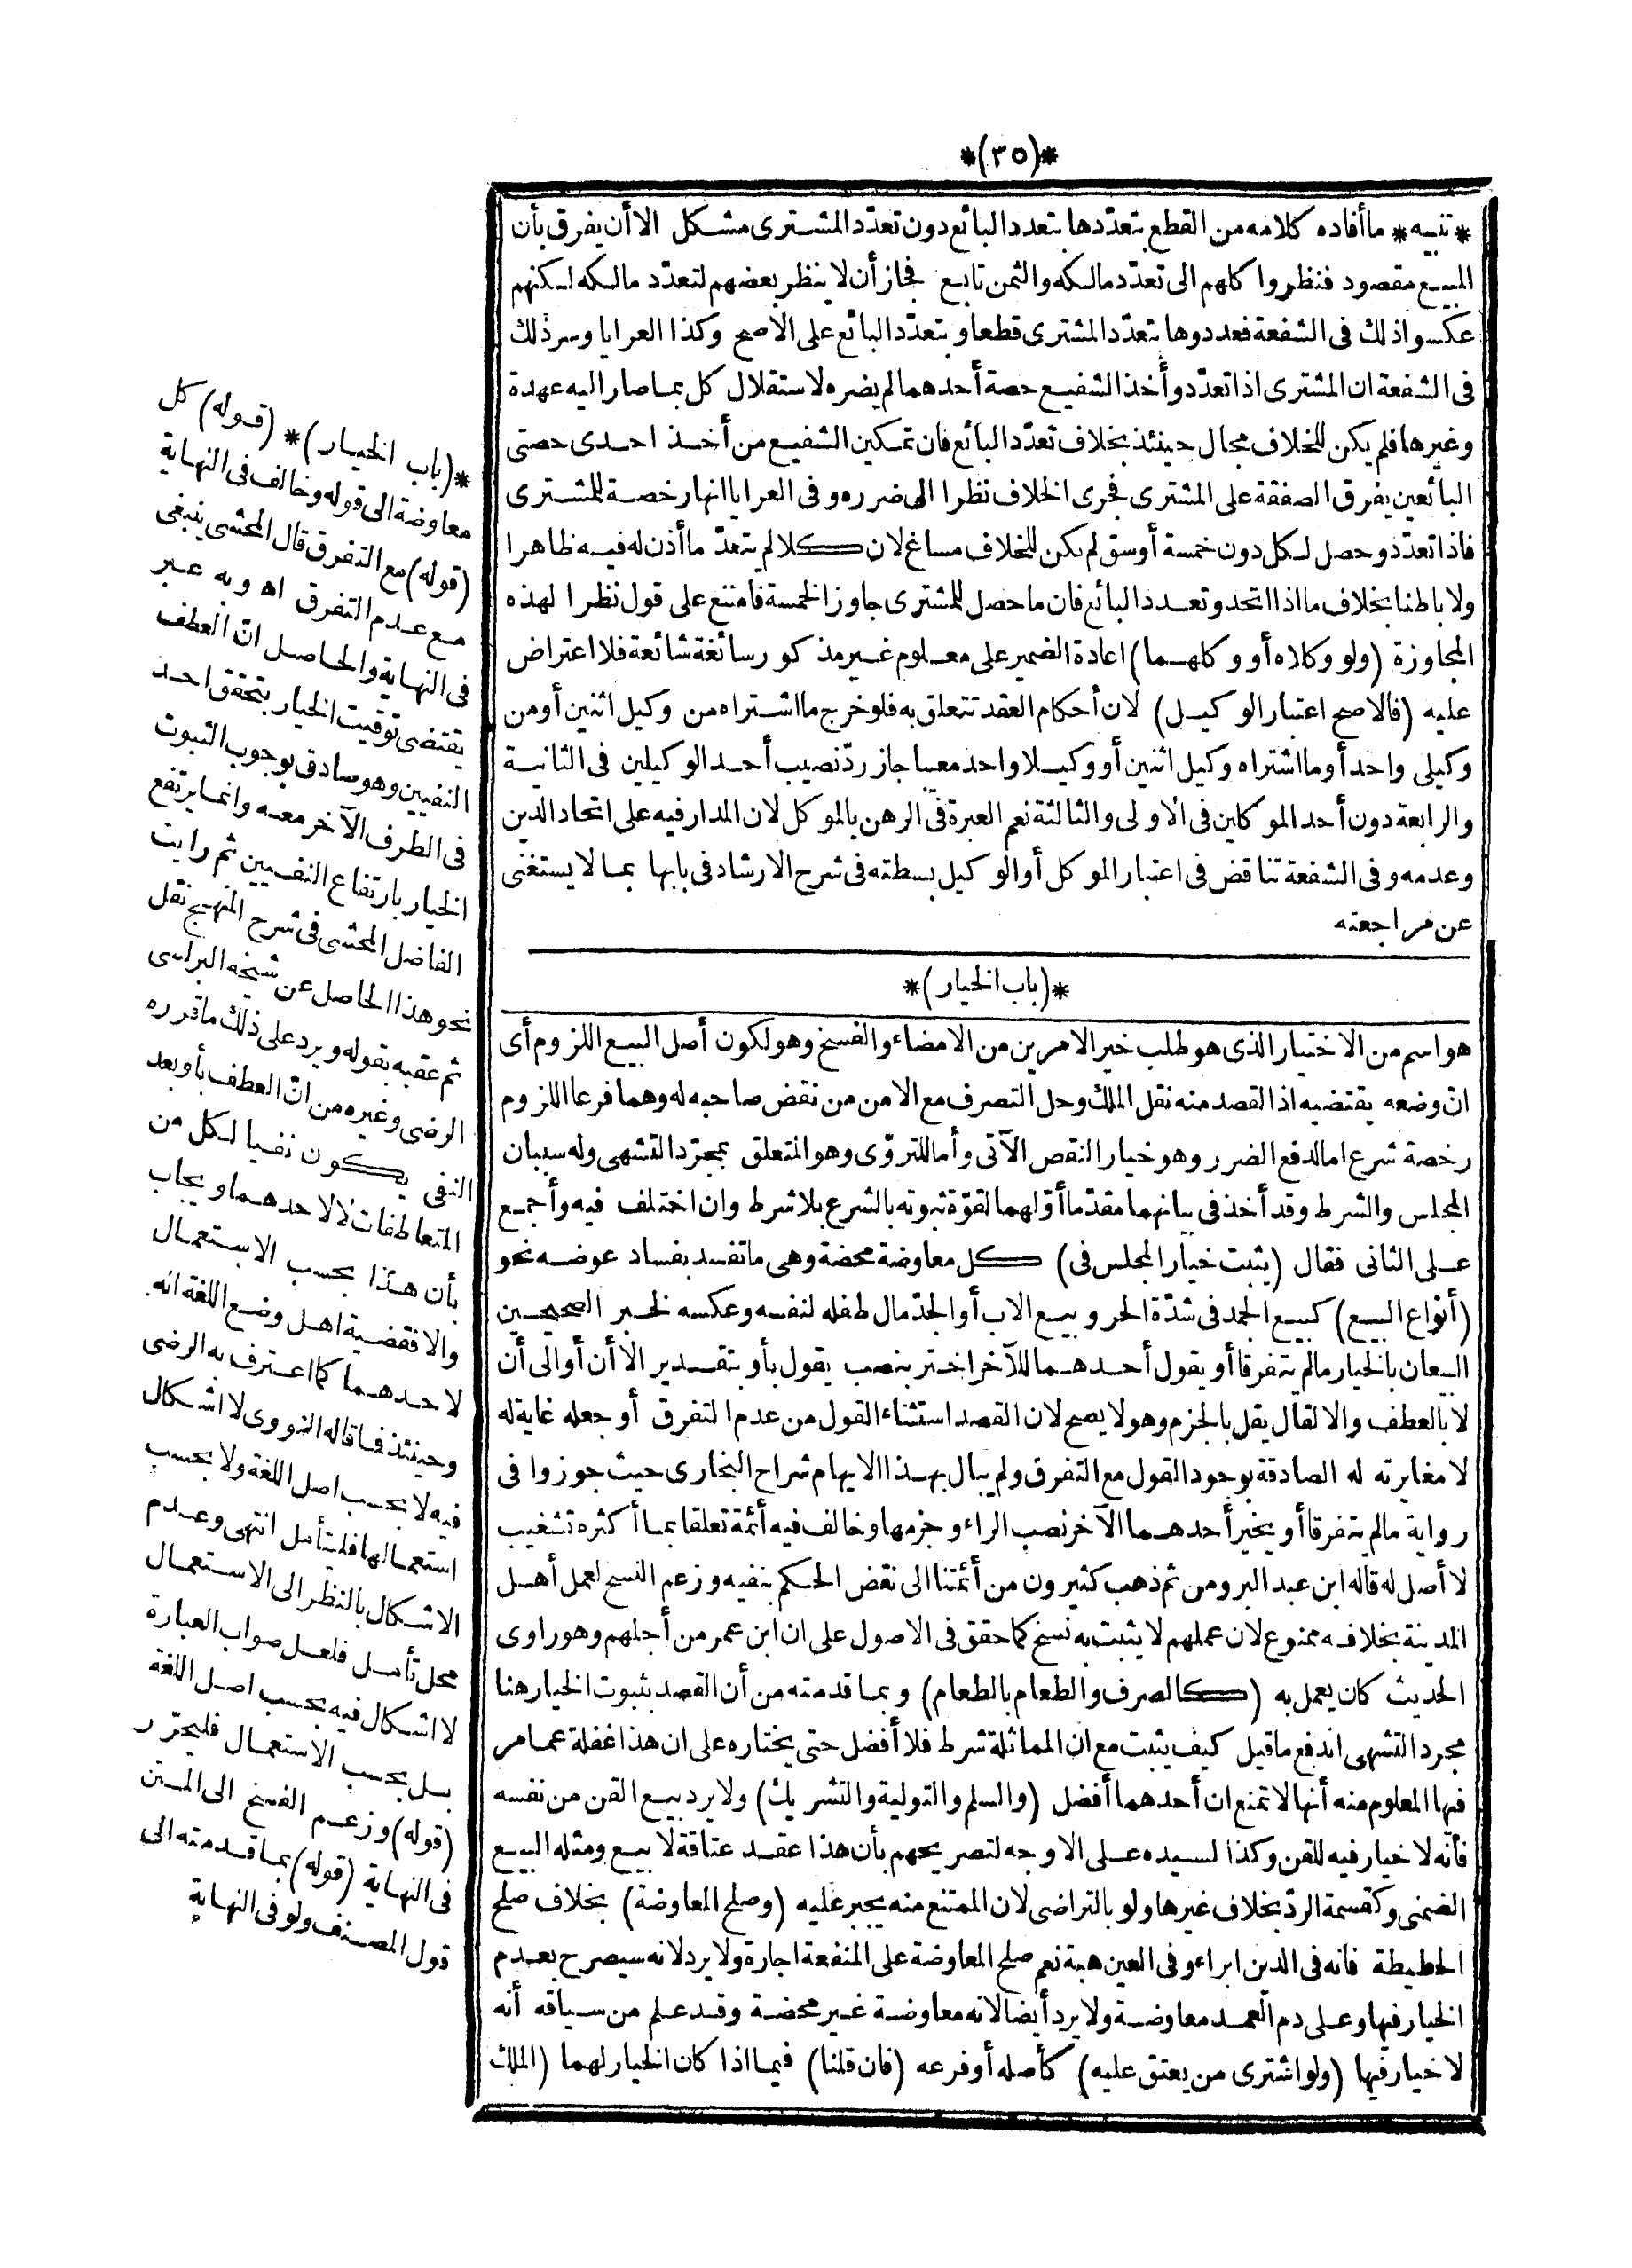 *(٣٥)*
*تنبيه* ما أفاده كلامه من القطع بتعدّدها بتعدد البائع دون تعدّد المشترى مشكل الا أن يفرق بأن
المبيع مقصود فنظروا كلهم الى تعدّد مالكه والثمن تابع فجاز أن لا ينظر بعضهم لتعدّد مالكه لكنهم
عكسوا ذلك فى الشفعة فعددوها بتعدّد المشترى قطعا وبتعدّد البائع على الاصح وكذا العرايا وسر ذلك
فى الشفعة ان المشترى اذا تعدّد وأخذ الشفيع حصة أحدهما لم يضره لاستقلال كل بما صار اليه عهدة
وغيرها فلم يكن للخلاف مجال حينئذ بخلاف تعدّد البائع فان تمكين الشفيع من أخذ احدى حصتى
البائعين يفرق الصفقة على المشترى فجرى الخلاف نظرا الى ضرره وفى العرايا انها رخصة للمشترى
فاذا تعدّد وحصل لكل دون خمسة أوسق لم يكن للخلاف مساغ لان كلا لم يتعدّ ما أذن له فيه ظاهرا
ولا باطنا بخلاف ما اذا اتحد وتعدد البائع فان ما حصل للمشترى جاوز الخمسة فامتنع على قول نظرا لهذه
المجاوزة (ولو وكلاه أو وكلهما) اعادة الضمير على معلوم غير مذكور سائغة شائعة فلا اعتراض
عليه (فالاصح اعتبار الوكيل) لان أحكام العقد تتعلق به فلو خرج ما اشتراه من وكيل اثنين أو من
وكيلى واحد أو ما اشتراه وكيل اثنين أو وكيلا واحد معيبا جاز ردّ نصيب أحد الوكيلين فى الثانية
والرابعة دون أحد الموكلين فى الاولى والثالثة نعم العبرة فى الرهن بالموكل لان المدار فيه على اتحاد الدين
وعدمه وفى الشفعة تناقض فى اعتبار الموكل أو الوكيل بسطته فى شرح الارشاد فى بابها بما لا يستغنى
عن مراجعته
*(باب الخيار)*
هو اسم من الاختيار الذى هو طلب خير الامرين من الامضاء والفسخ وهو لكون أصل البيع اللزوم أى
انّ وضعه يقتضيه اذ القصد منه نقل الملك وحل التصرف مع الامن من نقض صاحبه له وهما فرعا اللزوم
رخصة شرع اما لدفع الضرر وهو خيار النقص الآتى وأما للتروّى وهو المتعلق بمجرّد التشهى وله سببان
المجلس والشرط وقد أخذ فى بيانهما مقدّما أوّلهما لقوّة ثبوته بالشرع بلا شرط وان اختلف فيه وأجمع
على الثانى فقال (يثبت خيار المجلس فى) كل معاوضة محضة وهى ما تفسد بفساد عوضه نحو
(أنواع البيع) كبيع الجمد فى شدّة الحر وبيع الاب أو الجدّ مال طفله لنفسه وعكسه لخبر الصحيحين
البيعان بالخيار ما لم يتفرقا أو يقول أحدهما للآخر اختر بنصب يقول بأو بتقدير الا أن أو الى أن
لا بالعطف والا لقال يقل بالجزم وهو لا يصح لان القصد استثناء القول من عدم التفرق أو جعله غاية له
لا مغايرته له الصادقة بوجود القول مع التفرق ولم يبال بهذا الايهام شراح البخارى حيث جوزوا فى
رواية ما لم يتفرقا أو يخير أحدهما الآخر نصب الراء وجزمها وخالف فيه أئمة تعلقا بما أكثره تشغيب
لا أصل له قاله ابن عبد البر ومن ثم ذهب كثيرون من أئمتنا الى نقض الحكم بنفيه وزعم النسخ لعمل أهل
المدينة بخلافه ممنوع لان عملهم لا يثبت به نسخ كما حقق فى الاصول على ان ابن عمر من أجلهم وهو راوى
الحديث كان يعمل به (كالصرف والطعام بالطعام) وبما قدمته من أن القصد بثبوت الخيار هنا
مجرد التشهى اندفع ما قيل كيف يثبت مع ان المماثلة شرط فلا أفضل حتى يختاره على ان هذا غفلة عما مر
فيها المعلوم منه أنها لا تمنع ان أحدهما أفضل (والسلم والتولية والتشريك) ولا يرد بيع القن من نفسه
فانّه لا خيار فيه للقن وكذا لسيده على الاوجه لتصريحهم بأن هذا عقد عتاقة لا بيع ومثله البيع
الضمنى وكقسمة الردّ بخلاف غيرها ولو بالتراضى لان الممتنع منه يجبر عليه (وصلح المعاوضة) بخلاف صلح
الحطيطة فانه فى الدين ابراء وفى العين هبة نعم صلح المعاوضة على المنفعة اجارة ولا يرد لانه سيصرح بعدم
الخيار فيها وعلى دم العمد معاوضة ولا يرد أيضا لانه معاوضة غير محضة وقد علم من سياقه أنه
لا خيار فيها (ولو اشترى من يعتق عليه) كأصله أو فرعه (فان قلنا) فيما اذا كان الخيار لهما (الملك
*(باب الخيار)* (قوله) كل
معاوضة الى قوله وخالف فى النهاية
(قوله) مع التفرق قال المحشى ينبغى
مع عدم التفرق اه وبه عبر
فى النهاية والحاصل انّ العطف
يقتضى توقيت الخيار بتحقق احد
النفيين وهو صادق بوجوب الثبوت
فى الطرف الآخر معه وانما يرتفع
الخيار بارتفاع النفيين ثم رايت
الفاضل المحشى فى شرح المنهج نقل
نحو هذا الحاصل عن شيخه البرلسى
ثم عقبه بقوله ويرد على ذلك ما قرره
الرضى وغيره من انّ العطف بأو بعد
النفى يكون نفيا لكل من
المتعاطفات لا لاحدهما ويجاب
بأن هذا بحسب الاستعمال
والا فقضية اصل وضع اللغة انه
لاحدهما كما اعترف به الرضى
وحينئذ فما قاله النووى لا اشكال
فيه لا بحسب اصل اللغة ولا بحسب
استعمالها فليتأمل انتهى وعدم
الاشكال بالنظر الى الاستعمال
محل تأمل فلعل صواب العبارة
لا اشكال فيه بحسب اصل اللغة
بل بحسب الاستعمال فليحرّر
(قوله) وزعم الفسخ الى المتن
فى النهاية (قوله) بما قدمته الى
قول المصنف ولو فى النهاية